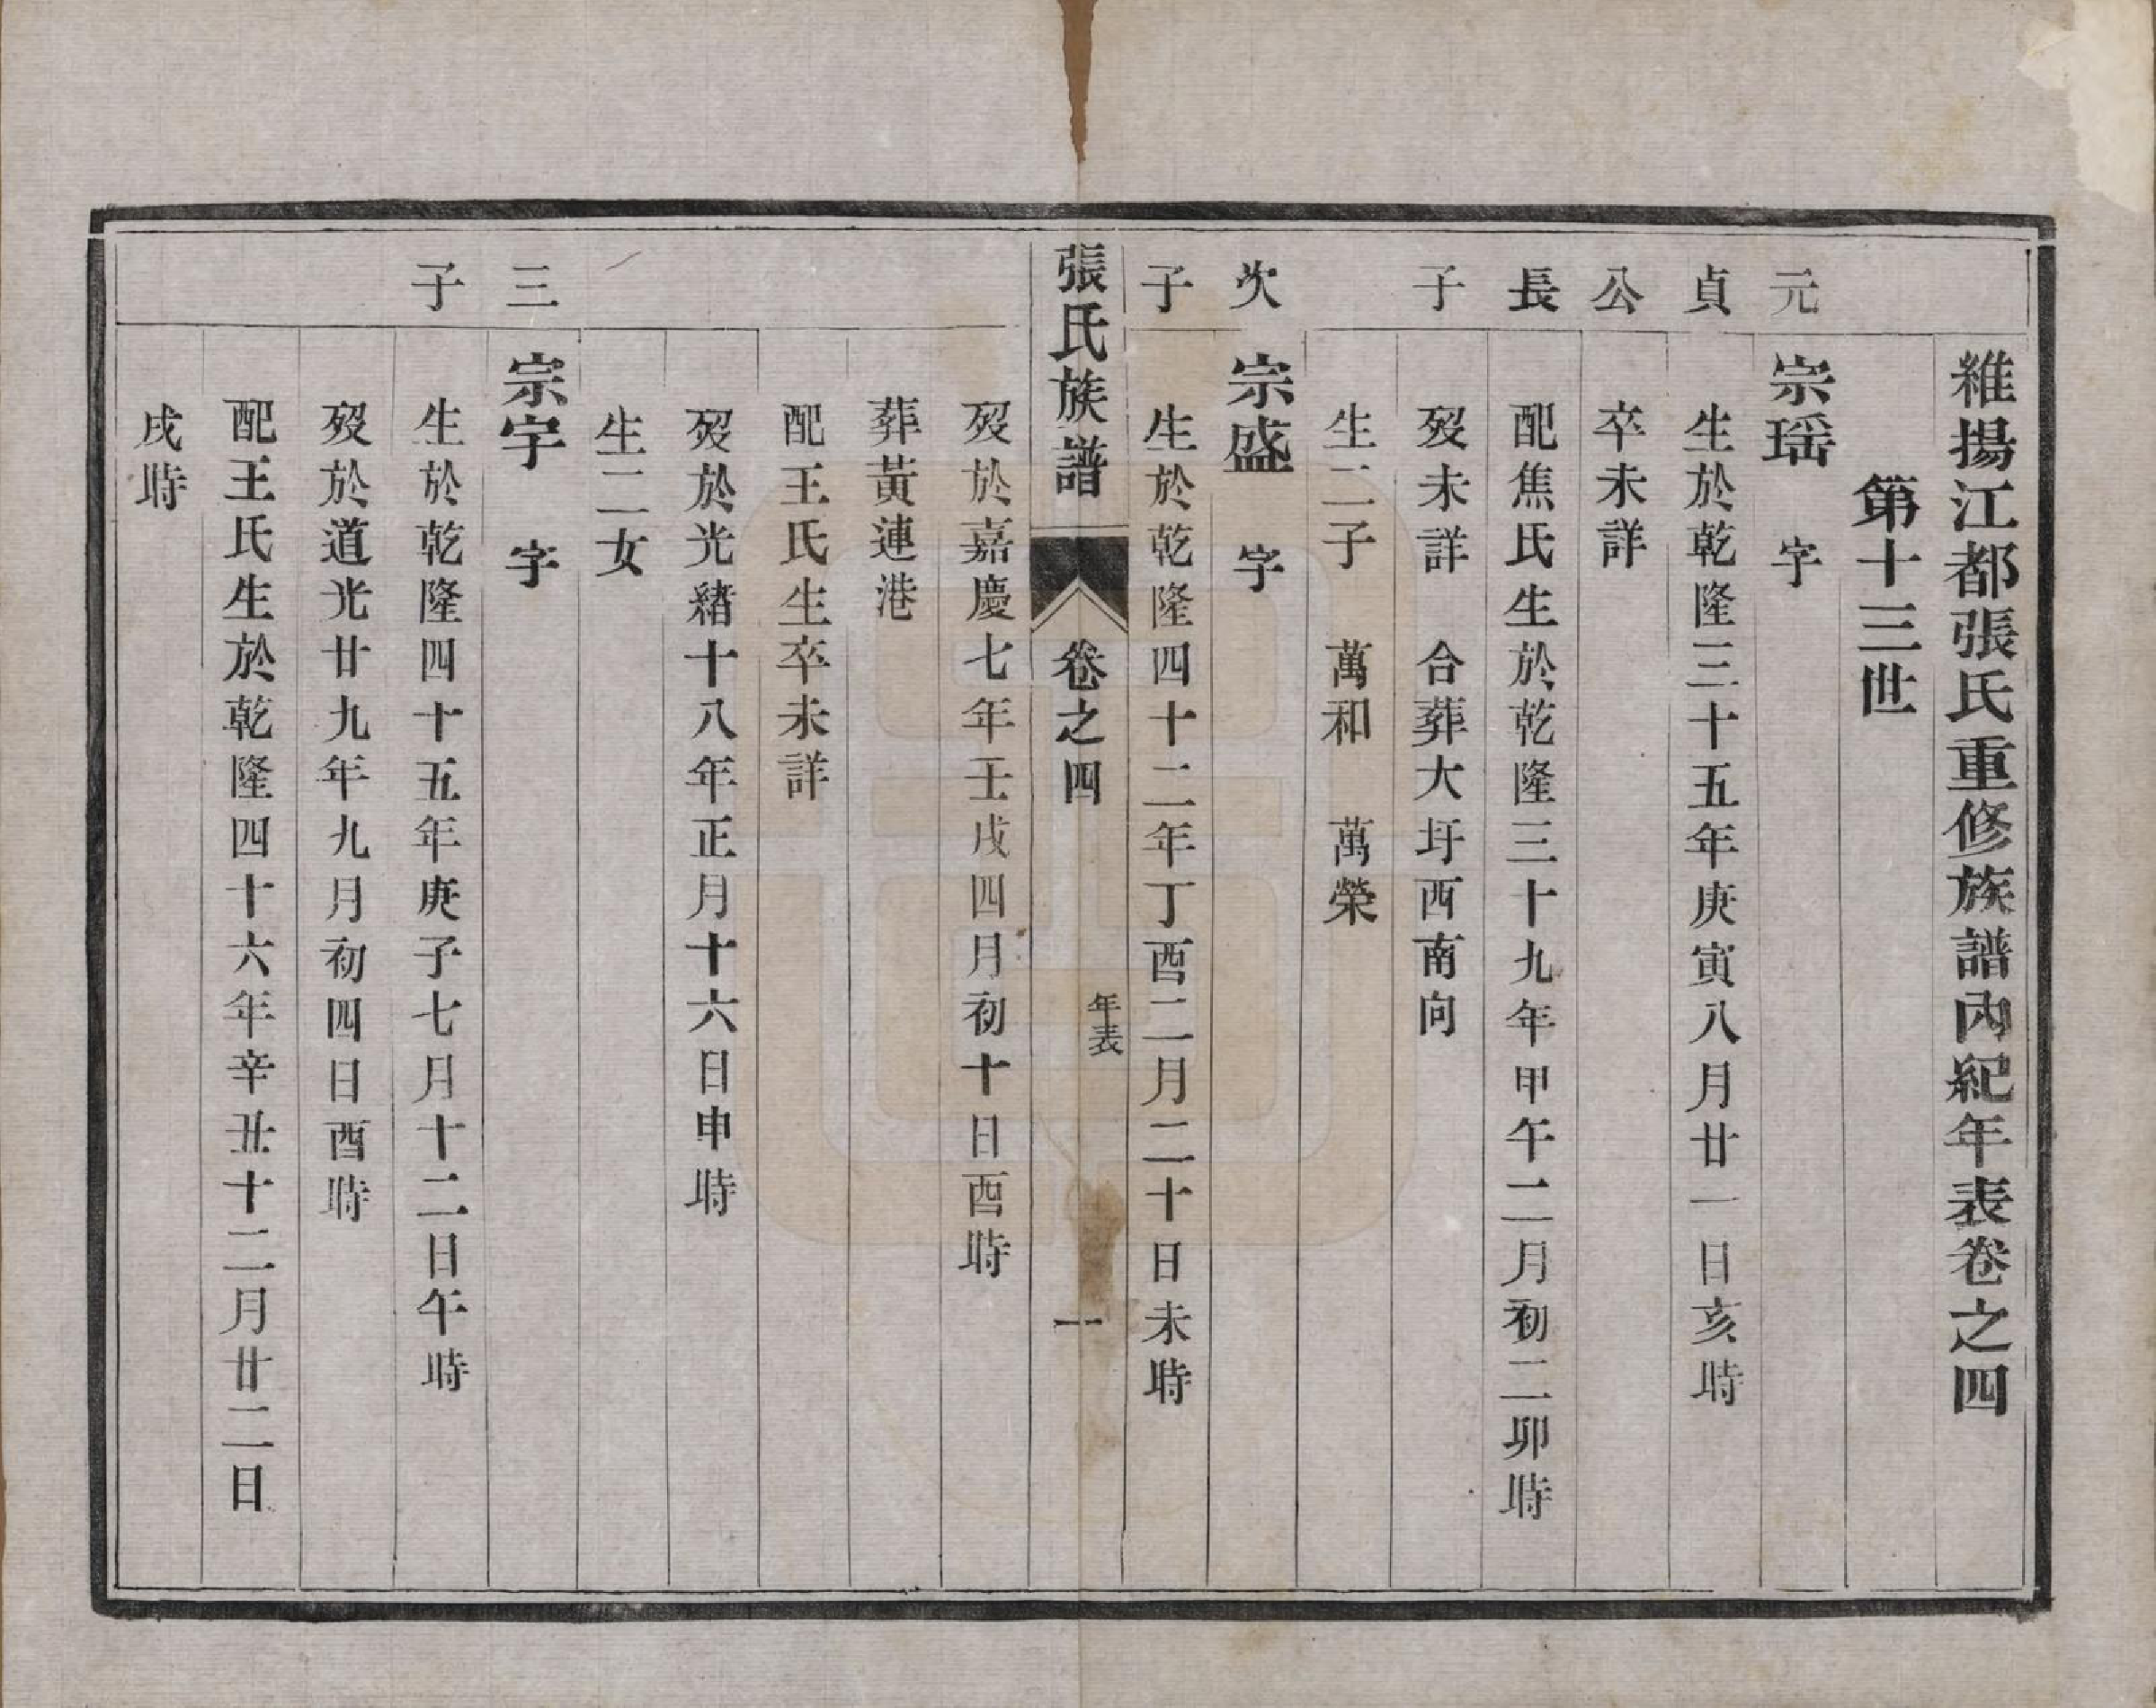 維揚江都張氏重修族譜內紀年表卷之四
第十三世
元 宗瑶 字
貞 生於乾隆三十五年庚寅八月廿一日亥時
公 卒未詳
長 配焦氏生於乾隆三十九年甲午二月初二卯時
子 歿未詳 合葬大圩西南向
生二子 萬和 萬榮
次 宗盛 字
子 生於乾隆四十二年丁酉二月二十日未時
張氏族譜 卷之四 年表 一
歿於嘉慶七年壬戌四月初十日酉時
葬黃連港
配王氏生卒未詳
歿於光緒十八年正月十六日申時
生二女
三 宗宇 字
子 生於乾隆四十五年庚子七月十二日午時
歿於道光廿九年九月初四日酉時
配王氏生於乾隆四十六年辛丑十二月廿二日
戌時